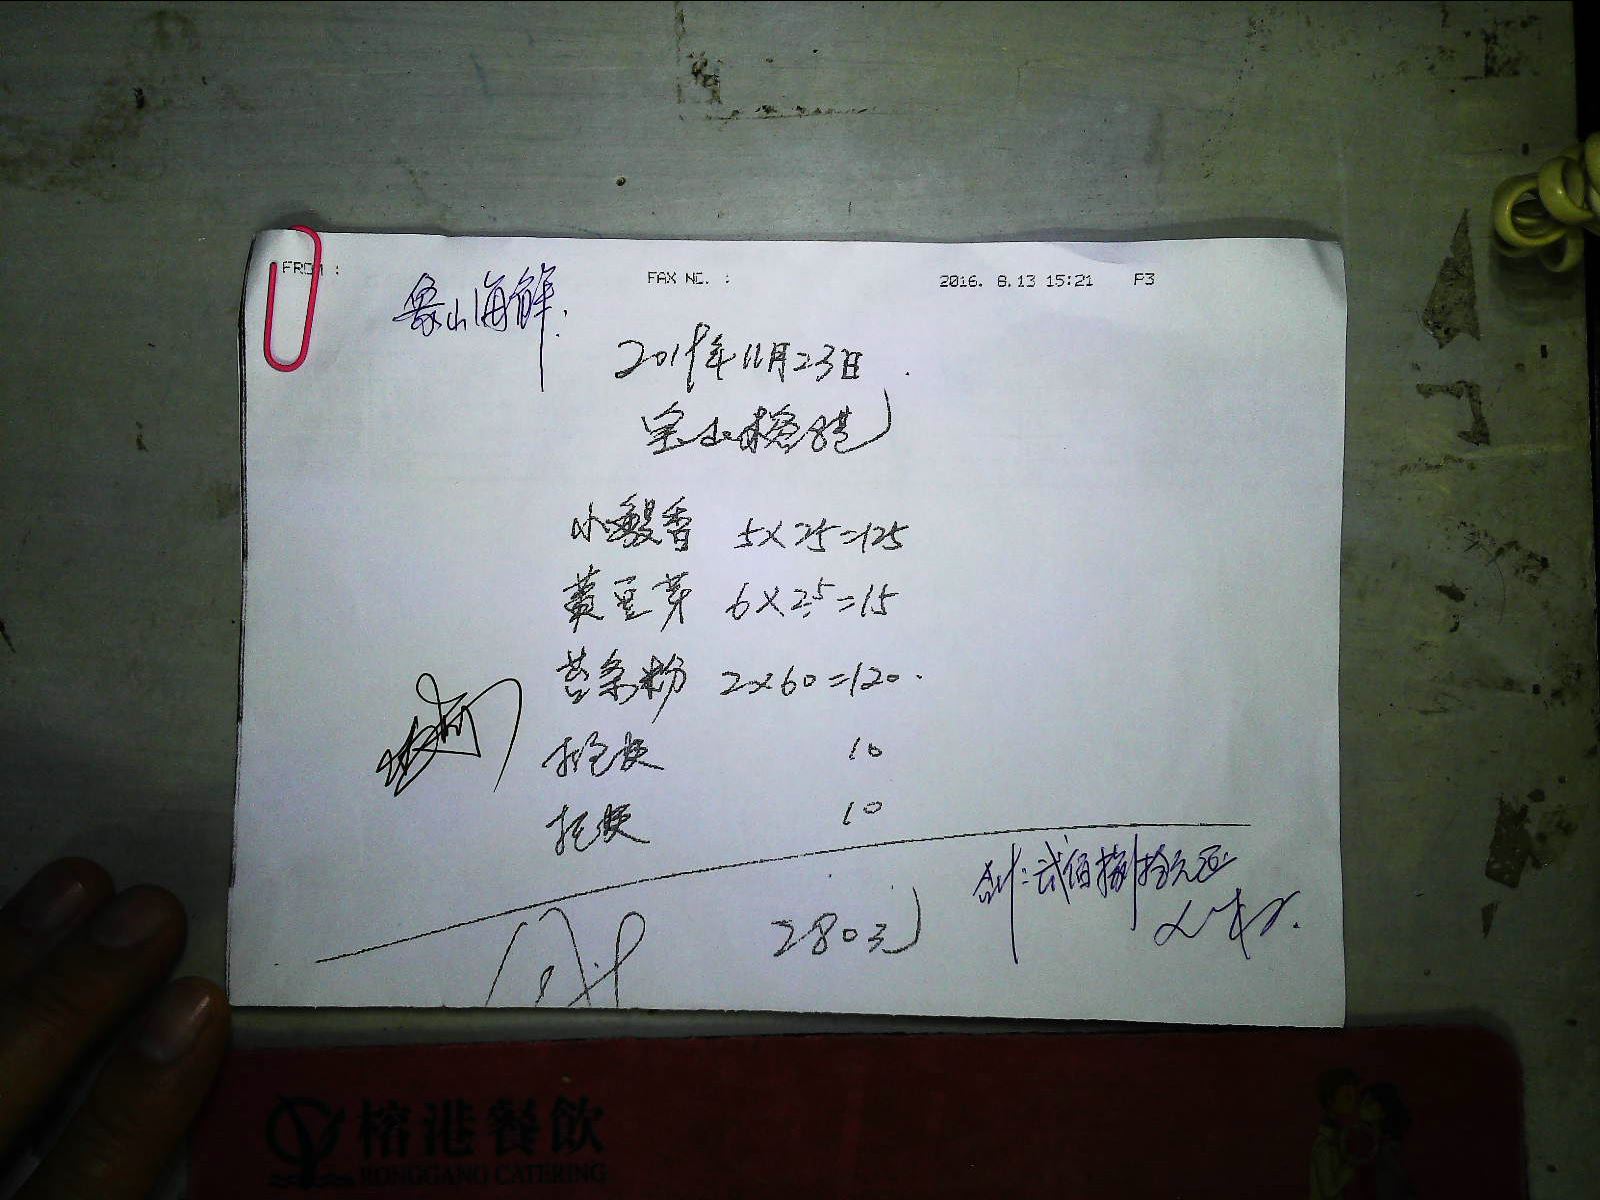 FROM :
FAX NO. :
2016. 8.13 15:21 P3
象山海鲜.
2019年11月23日
宝山榕港
小鳗香 5×25=125
黄豆芽 6×2.5=15
苕条粉 2×60=120.
10
10
280元
合计:贰佰捌拾元正
榕港餐飲
RONGGANG CATERING